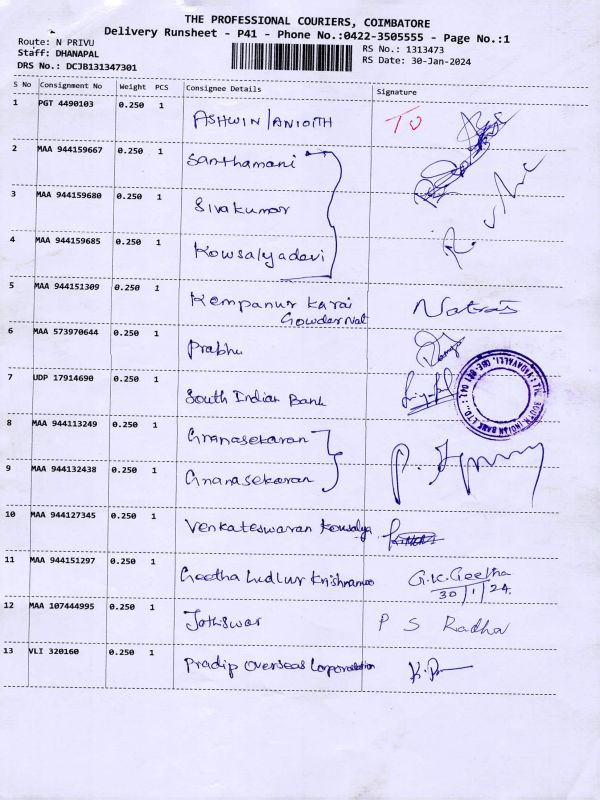 THE PROFESSIONAL COURIERS, COIMBATORE
Delivery Runsheet - P41 - Phone No.:0422-3505555 - Page No.:1
Route: N PRIVU
Staff: DHANAPAL
DRS No.: DCJB131347301
RS No.: 1313473
RS Date: 30-Jan-2024
S No Consignment No Weight PCS Consignee Details Signature
1 PGT 4490103 0.250 1 ASHWIN/ANIOTH TO
2 MAA 944159667 0.250 1 Santhamani
3 MAA 944159680 0.250 1 Sivakumar
4 MAA 944159685 0.250 1 Kowsalyadevi
5 MAA 944151309 0.250 1 Kempanur Karai
Gowder Nat
6 MAA 573970644 0.250 1 Prabhu
7 UDP 17914690 0.250 1 South Indian Bank
8 MAA 944113249 0.250 1 Gnanasekaran
9 MAA 944132438 0.250 1 Gnanasekaran
10 MAA 944127345 0.250 1 Venkateswaran Kowsalya
11 MAA 944151297 0.250 1 Geetha Ludlur Krishnamoo G.K.Geetha
30/1/24
12 MAA 107444995 0.250 1 Jothiswar P S Radha
13 VLI 320160 0.250 1 Pradip Overseas Corporation